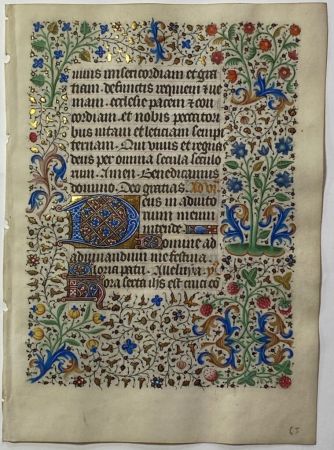 nimis misericordiam et gra
tiam defunctis requiem & ue
niam. ecclesie pacem & con
cordiam. et nobis peccatori
bus uitam et leticiam sempi
ternam. Qui uiuis et regnas
deus per omnia secula seculo
rum. Amen. Benedicamus
domino. Deo gratias. Ad vi
Deus in adiuto
rium meum
intende.
Domine ad
adiuuandum me festina.
Gloria patri. Alleluya. y
Hora sexta ihs est cruci co
65